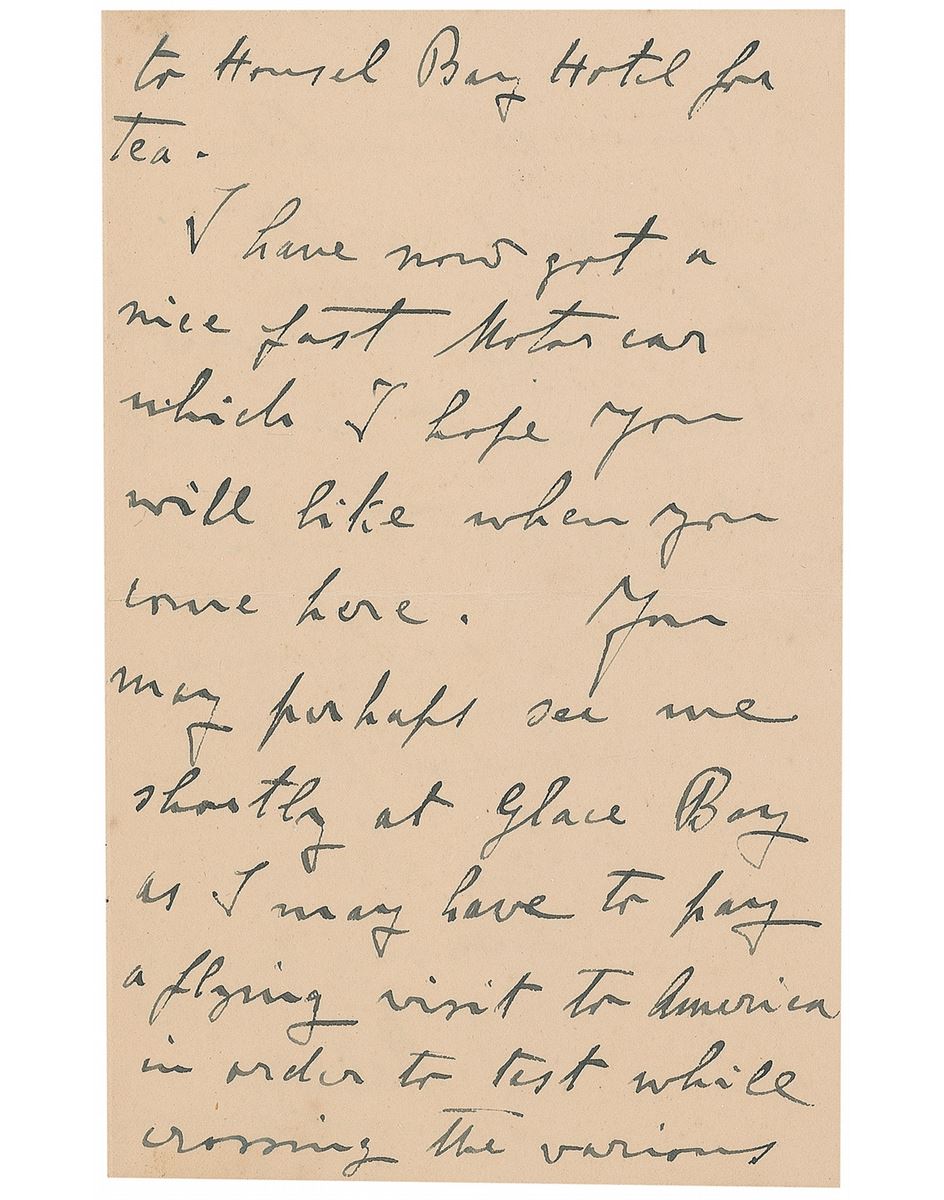 to Housel Bay Hotel for
tea.
I have now got a
nice fast Motor car
which I hope you
will like when you
come here. You
may perhaps see me
shortly at Glace Bay
as I may have to pay
a flying visit to America
in order to test while
crossing the various